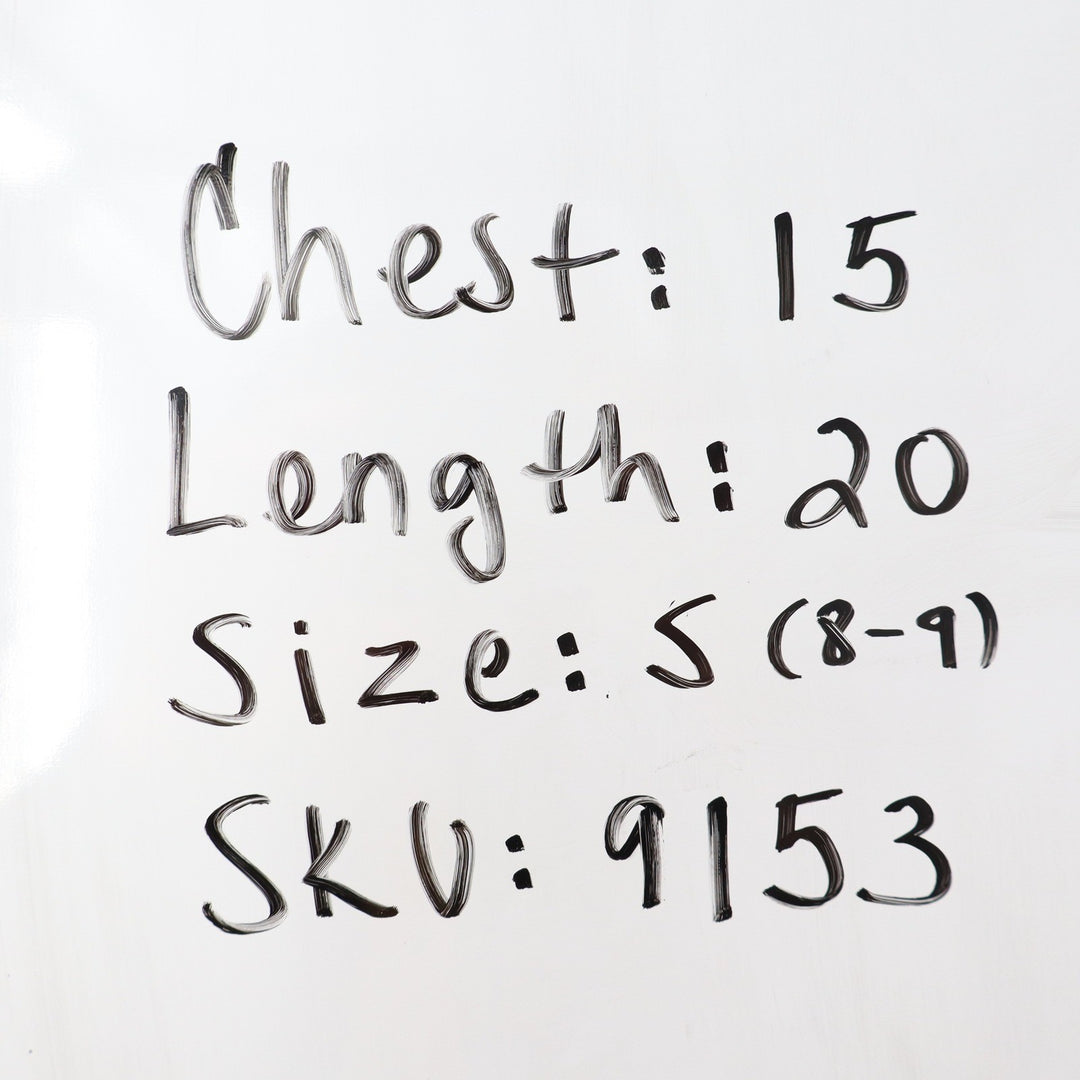 Chest: 15
Length: 20
Size: S (8-9)
SKU: 9153